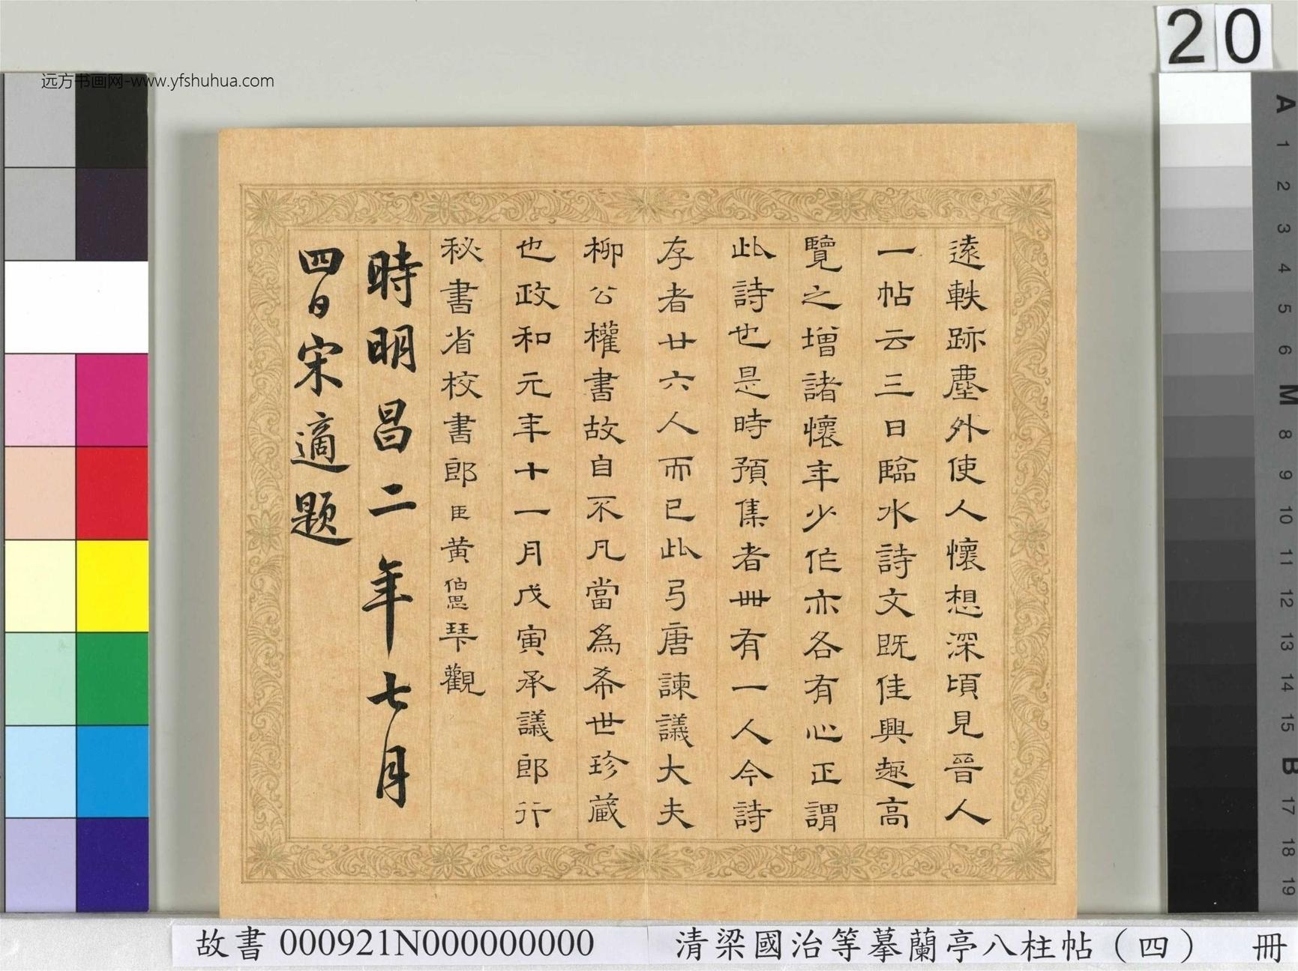 远方书画网-www.yfshuhua.com
20
遠軼跡塵外使人懷想深頃見晉人
一帖云三日臨水詩文既佳興趣高
覽之增諸懷年少作亦各有心正謂
此詩也是時預集者卌有一人今詩
存者廿六人而已此弓唐諫議大夫
柳公權書故自不凡當為希世珍蔵
也政和元年十一月戊寅承議郎行
秘書省校書郎臣黃伯思琴觀
時明昌二年七月
四日宋適題
A 1 2 3 4 5 6 M 8 9 10 11 12 13 14 15 B 17 18 19
故書 000921N000000000
清梁國治等摹蘭亭八柱帖（四） 冊